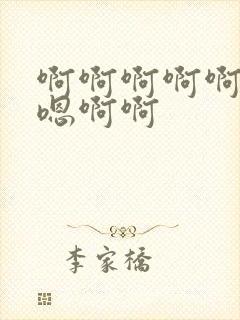 啊啊啊啊啊
嗯啊啊
李家橋